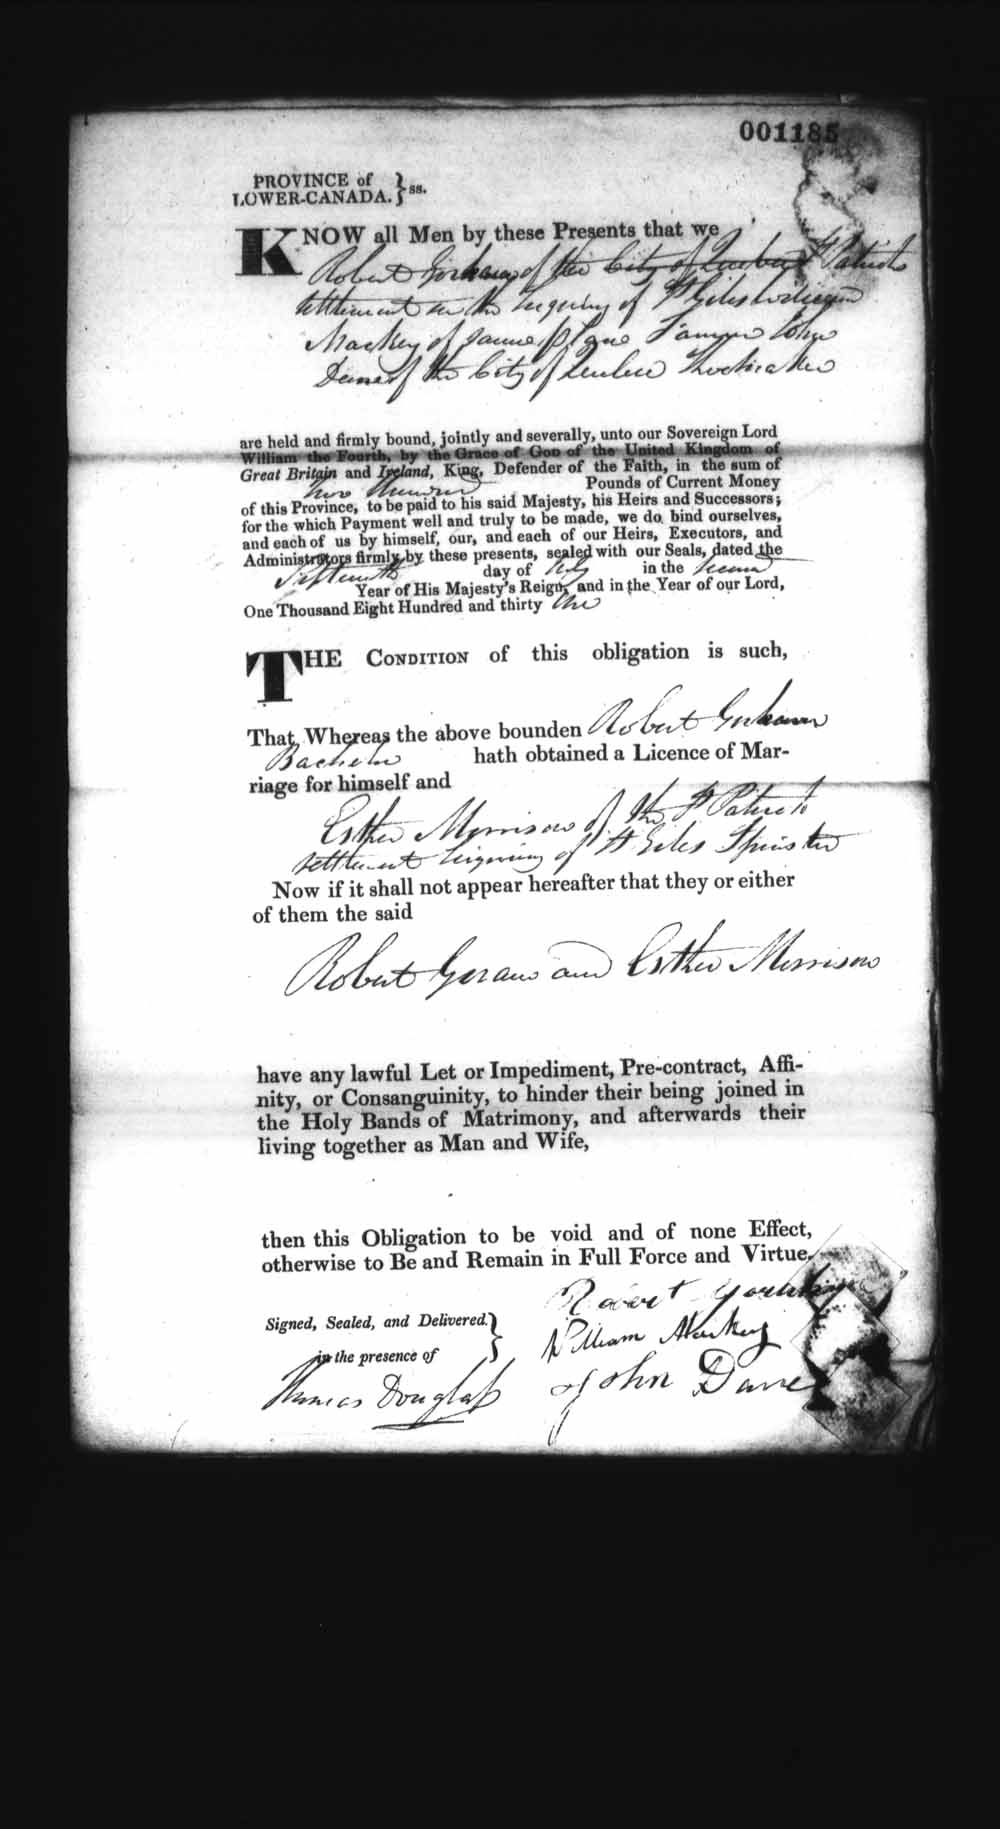 001185
PROVINCE of
LOWER-CANADA. } ss.
KNOW all Men by these Presents that we
Robert of the City of Quebec St Patricks
settlement in the Seigniory of St Giles William
Mackey of same place Farmer John
Dane of the City of Quebec Shoemaker
are held and firmly bound, jointly and severally, unto our Sovereign Lord
William the Fourth, by the Grace of GOD of the United Kingdom of
Great Britain and Ireland, King, Defender of the Faith, in the sum of
two hundred Pounds of Current Money
of this Province, to be paid to his said Majesty, his Heirs and Successors;
for the which Payment well and truly to be made, we do bind ourselves,
and each of us by himself, our, and each of our Heirs, Executors, and
Administrators firmly by these presents, sealed with our Seals, dated the
day of July in the second
Year of His Majesty's Reign, and in the Year of our Lord,
One Thousand Eight Hundred and thirty one
THE CONDITION of this obligation is such,
That Whereas the above bounden Robert
Bachelor hath obtained a Licence of Mar-
riage for himself and
Esther Morrison of the St Patricks
settlement Seigniory of St Giles Spinster
Now if it shall not appear hereafter that they or either
of them the said
Robert Goraw and Esther Morrison
have any lawful Let or Impediment, Pre-contract, Affi-
nity, or Consanguinity, to hinder their being joined in
the Holy Bands of Matrimony, and afterwards their
living together as Man and Wife,
then this Obligation to be void and of none Effect,
otherwise to Be and Remain in Full Force and Virtue.
Robert
Signed, Sealed, and Delivered }
William Mackey
in the presence of
John Dane
Thomas Douglass